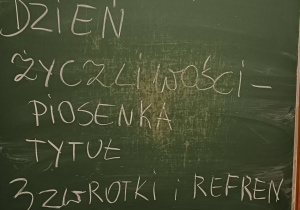 DZIEŃ
ŻYCZLIWOŚCI -
PIOSENKA
TYTUŁ
3 ZWROTKI i REFREN